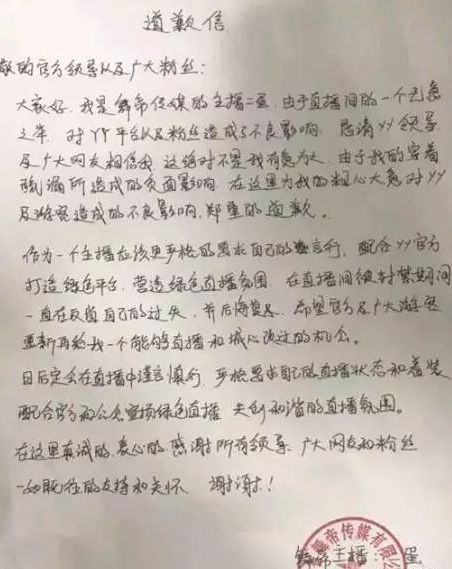 道歉信
敬的官方领导以及广大粉丝:
大家好,我是舞帝传媒的主播二蛋,由于直播间的一个无意
之举,对YY平台以及粉丝造成了不良影响,恳请YY领导
及广大网友相信我,这绝对不是我有意为之,由于我的穿着
疏漏所造成的负面影响,在这里为我的粗心大意对YY
及游客造成的不良影响,郑重的道歉。
作为一个主播应该更严格的要求自己的言行,配合YY官方
打造绿色平台,营造绿色直播氛围,在直播间被封禁期间
一直在反省自己的过失,并后悔莫及,希望官方及广大游客
重新再给我一个能够直播和诚心改过的机会。
日后定会在直播中谨言慎行,严格要求自己的直播状态和着装
配合官方和公会宣扬绿色直播,共创和谐的直播氛围。
在这里真诚的,衷心的,感谢所有领导,广大网友和粉丝
一如既往的支持和关怀,谢谢!
舞帝主播: 蛋
舞帝传媒有限公